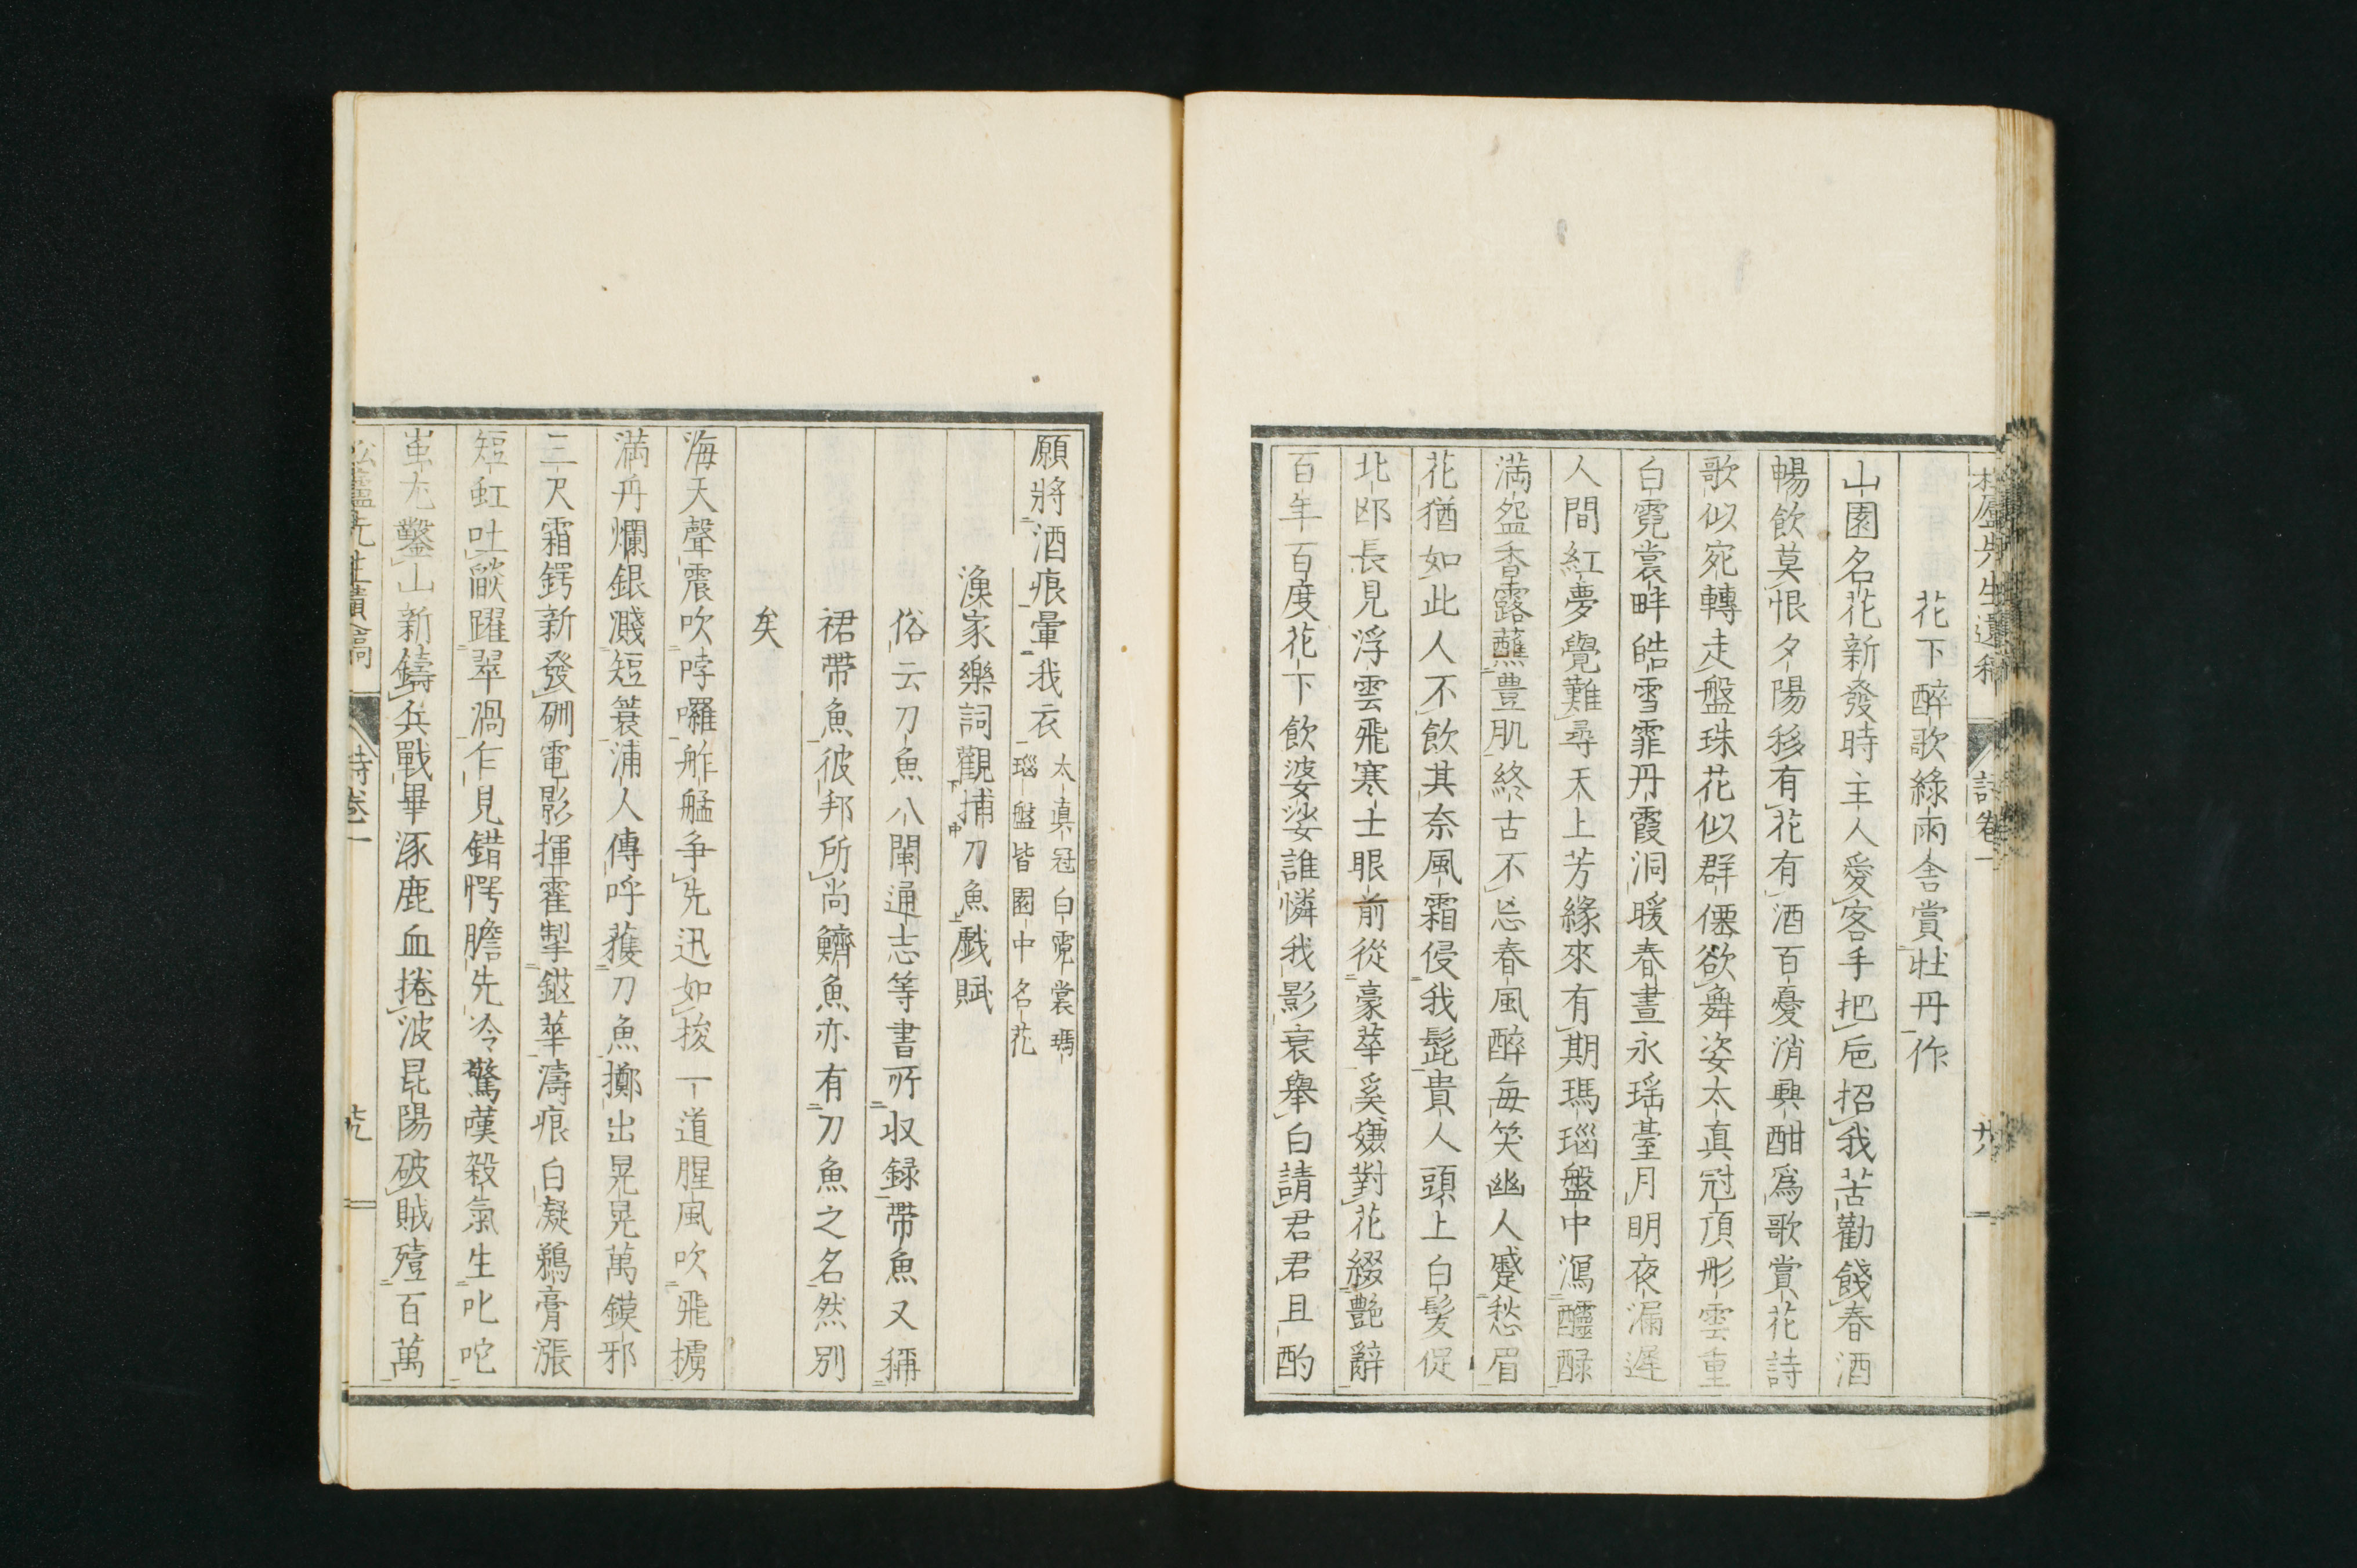 花下醉歌綠雨舍賞牡丹作
山園名花新發時主人愛客手把巵招我苦勸餞春酒
暢飲莫恨夕陽移有花有酒百憂消興酣爲歌賞花詩
歌似宛轉走盤珠花似群僊欲舞姿太真冠頂彤雲重
白霓裳畔皓雪霏丹霞洞暖春晝永瑤臺月明夜漏遲
人間紅夢覺難尋天上芳緣來有期瑪瑙盤中瀉醽醁
滿盌香露蘸豊肌終古不忘春風醉毎笑幽人蹙愁眉
花猶如此人不飲其奈風霜侵我髭貴人頭上白髪促
北邙長見浮雲飛寒士眼前從豪華奚嫌對花綴艶辭
百年百度花下飲婆娑誰憐我影衰舉白請君君且酌
願將酒痕暈我衣 太真冠白霓裳瑪
瑙盤皆園中名花
漁家樂詞觀捕刀魚戲賦
俗云刀魚八閩通志等書所収録帶魚又稱
裙帶魚彼邦所尚鱭魚亦有刀魚之名然別
矣
海天聲震吹哱囉舴艋争先迅如梭一道腥風吹飛擄
滿舟爛銀濺短簑浦人傳呼獲刀魚擲出晃晃萬鏌邪
三尺霜鍔新發硎電影揮霍掣鋋華濤痕白凝鵜膏漲
短虹吐燄躍翠渦乍見錯愕膽先冷驚嘆殺氣生叱咤
蚩尤鑿山新鑄兵戰畢涿鹿血捲波昆陽破賊殪百萬
詩卷一